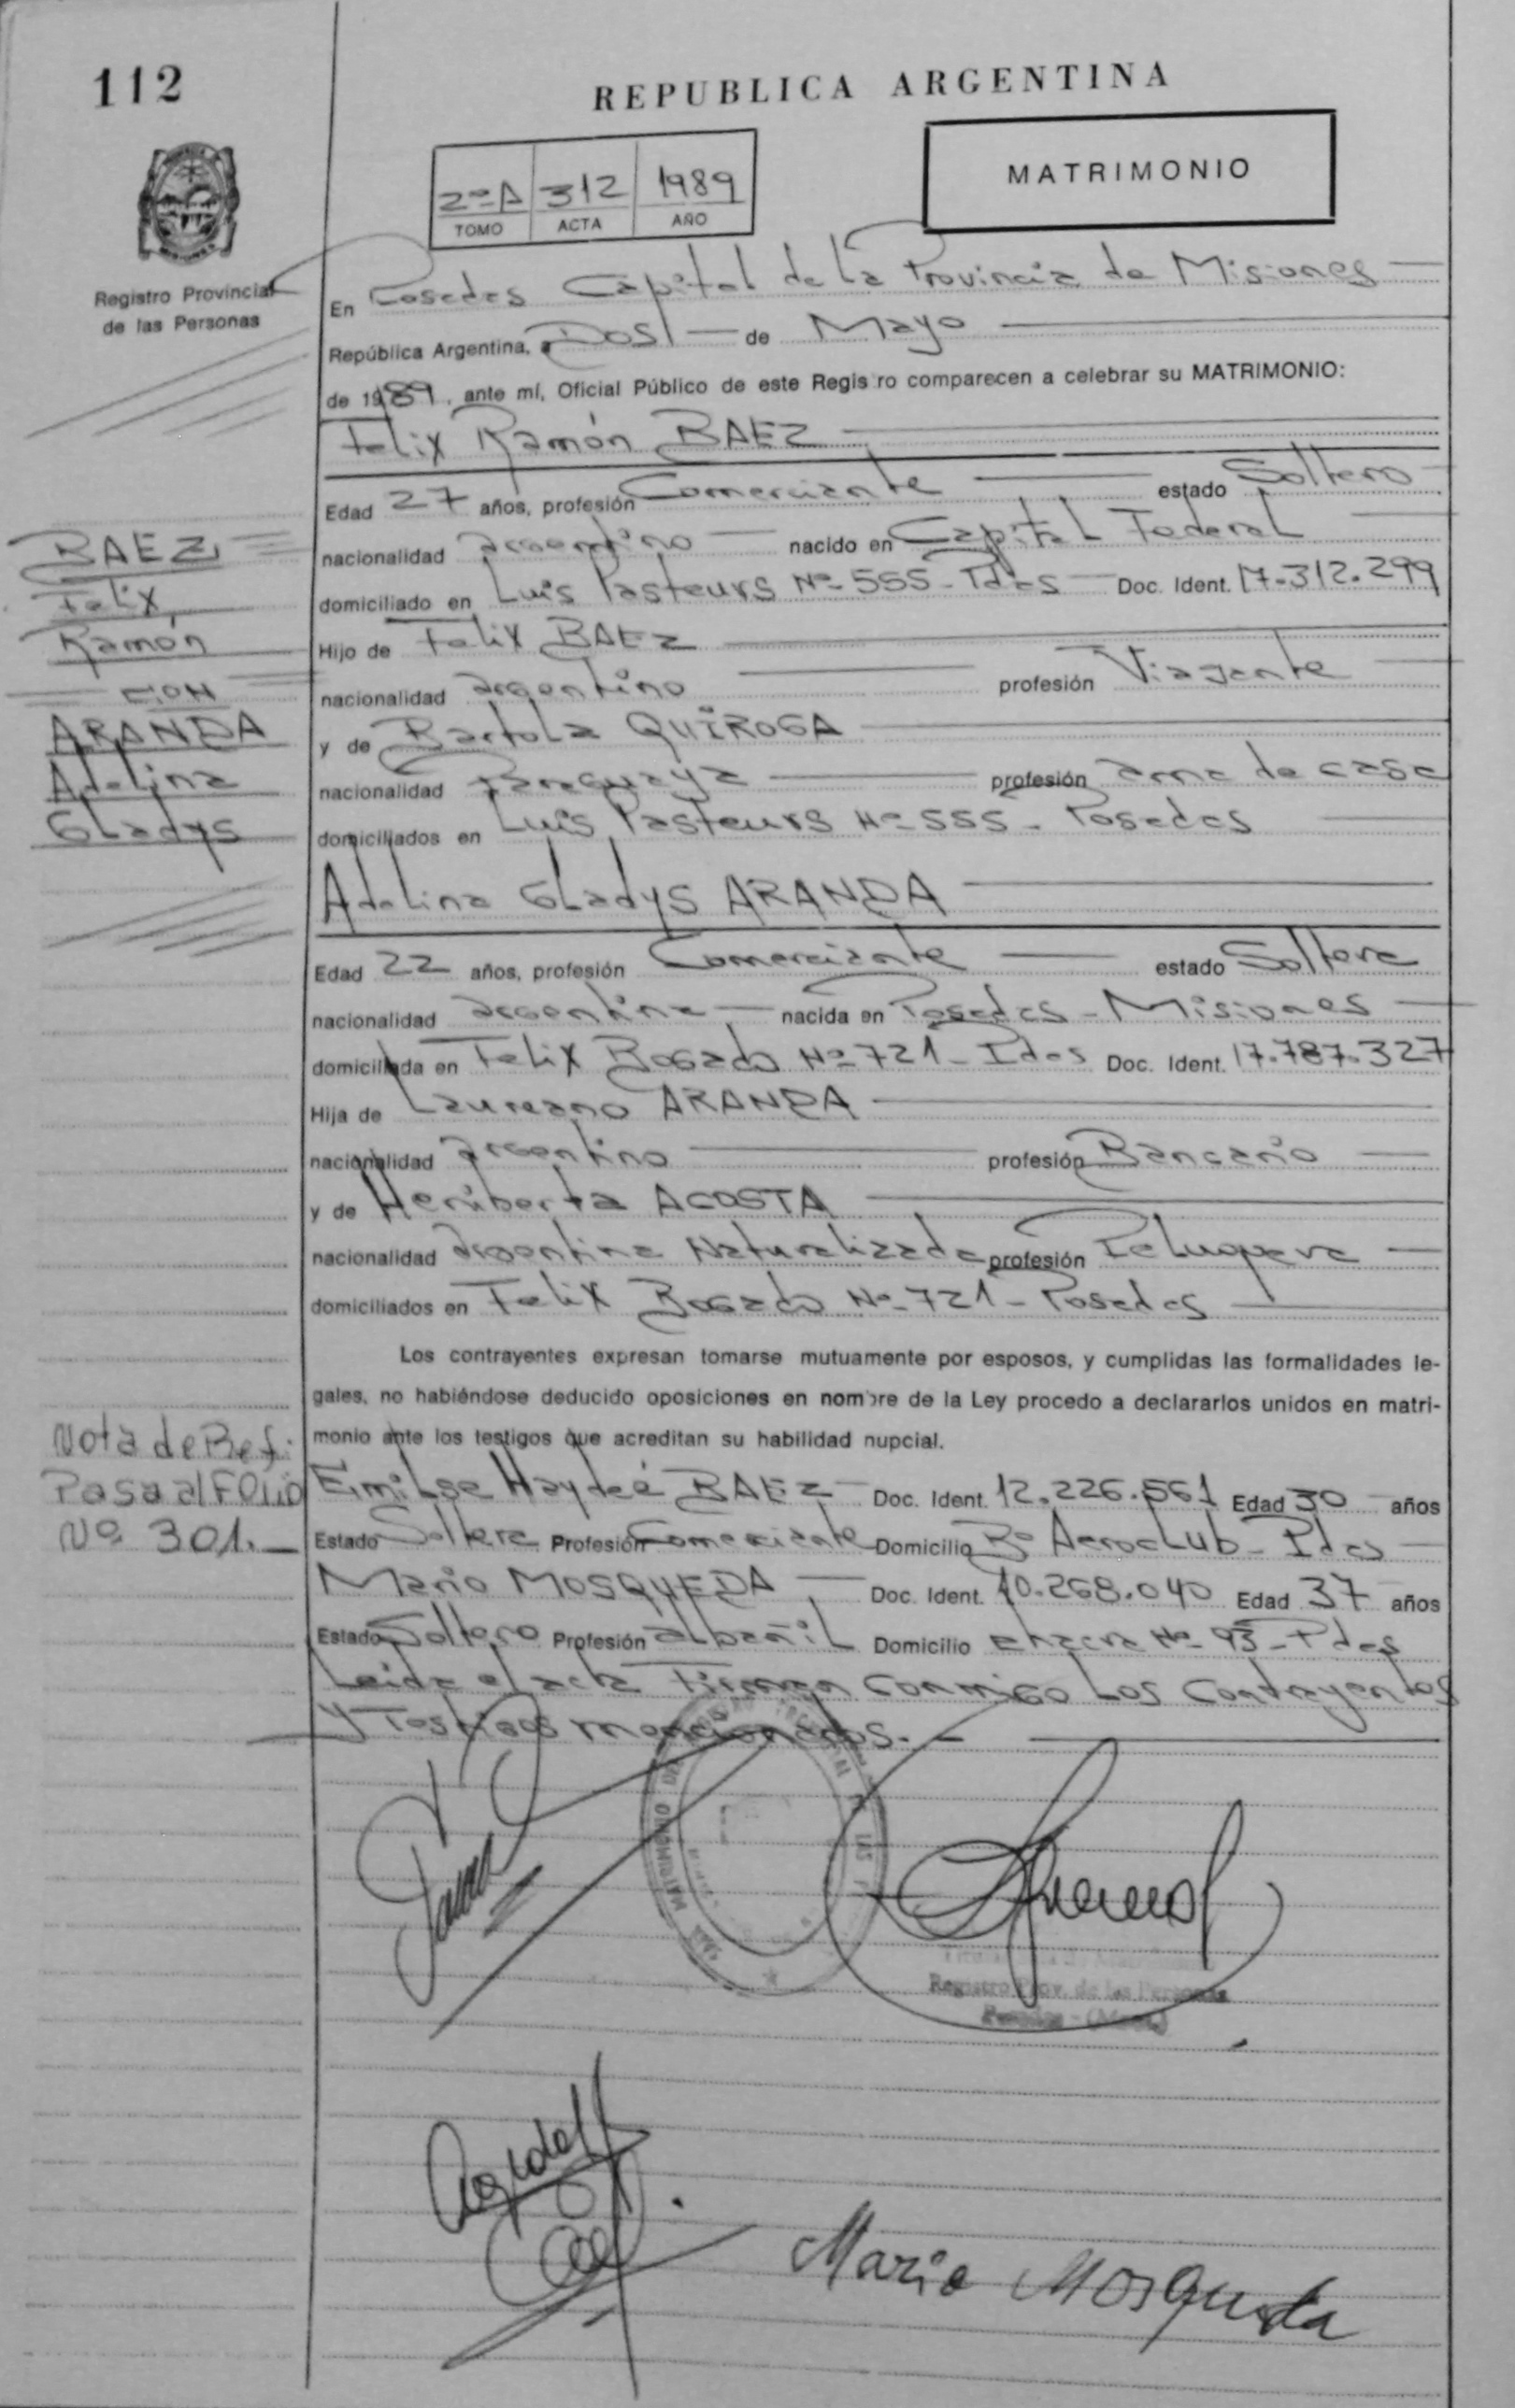 112
REPUBLICA ARGENTINA
MATRIMONIO
2º-A 312 1989
TOMO ACTA AÑO
Registro Provincial
de las Personas
En Posadas Capital de la Provincia de Misiones
República Argentina, a Dos de Mayo
de 1989, ante mí, Oficial Público de este Registro comparecen a celebrar su MATRIMONIO:
Felix Ramón BAEZ
Edad 27 años, profesión Comerciante estado Soltero
nacionalidad argentino nacido en Capital Federal
domiciliado en Luis Pasteurs Nº 555 - Pdas Doc. Ident. 17.312.299
Hijo de Felix BAEZ
nacionalidad argentino profesión Viajante
y de Bartola QUIROGA
nacionalidad Paraguaya profesión ama de casa
domiciliados en Luis Pasteurs Nº 555 - Posadas
BAEZ
Felix
Ramón
CON
ARANDA
Adelina
Gladys
Adelina Gladys ARANDA
Edad 22 años, profesión Comerciante estado Soltera
nacionalidad argentina nacida en Posadas - Misiones
domiciliada en Felix Bogado Nº 721 - Pdas Doc. Ident. 17.787.327
Hija de Laureano ARANDA
nacionalidad argentino profesión Bancario
y de Heriberta ACOSTA
nacionalidad argentina Naturalizada profesión Peluquera
domiciliados en Felix Bogado Nº 721 - Posadas
Los contrayentes expresan tomarse mutuamente por esposos, y cumplidas las formalidades le-
gales, no habiéndose deducido oposiciones en nombre de la Ley procedo a declararlos unidos en matri-
monio ante los testigos que acreditan su habilidad nupcial.
Nota de Ref:
Pasa al Folio
Nº 301.
Emilse Haydeé BAEZ Doc. Ident. 12.226.561 Edad 30 años
Estado Soltera Profesión Comerciante Domicilio Bº Aeroclub - Pdas
Mario MOSQUEDA Doc. Ident. 10.268.040 Edad 37 años
Estado Soltero Profesión albañil Domicilio chacra Nº 93 - Pdas
Leida el acta Firman conmigo los contrayentes
y Testigos mencionados.
Registro Prov. de las Personas
Mario Mosqueda